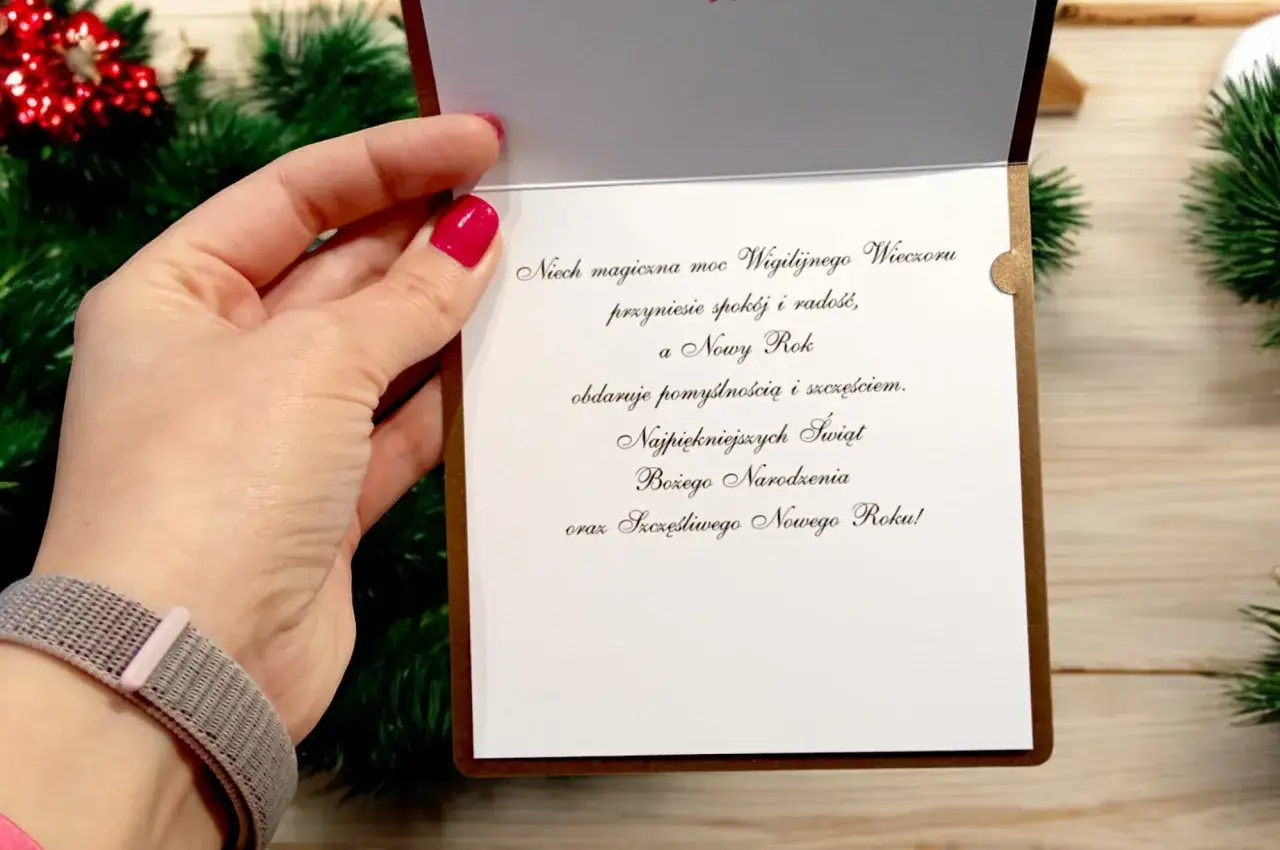 Niech magiczna moc Wigilijnego Wieczoru
przyniesie spokój i radość,
a Nowy Rok
obdaruje pomyślnością i szczęściem.
Najpiękniejszych Świąt
Bożego Narodzenia
oraz Szczęśliwego Nowego Roku!